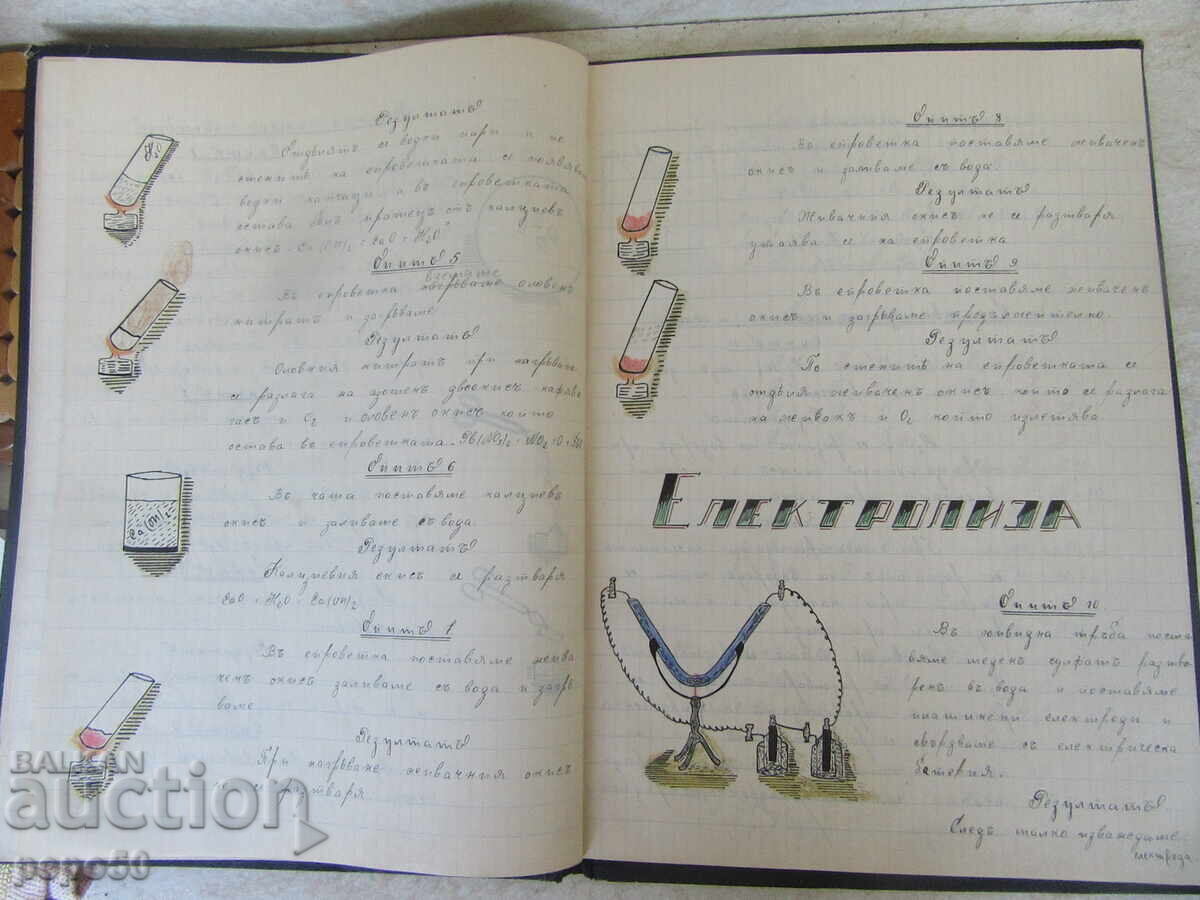 Резултатъ
Отдѣлятъ се водни пари и по
стенитѣ на епроветката се появяват
водни капчици, а въ епроветката
остава бял прашецъ отъ калциевъ
окисъ. Ca(OH)₂ = CaO + H₂O
H₂O
Опитъ 5
вземаме
Въ епроветка нагрѣваме оловенъ
нитратъ и загрѣваме
Резултатъ
Оловния нитратъ при нагрѣване
се разлага на азотенъ двоокисъ кафявъ
газъ и O₂ и оловенъ окисъ който
остава въ епроветката. Pb(NO₃)₂ = NO₂ + O +
Опитъ 6
Въ чаша поставяме калциевъ
окисъ и заливаме съ вода.
Резултатъ
Калциевия окисъ се разтваря
CaO + H₂O = Ca(OH)₂
Ca(OH)₂
Опитъ 7
Въ епроветка поставяме жива
ченъ окисъ заливаме съ вода и загрѣ
ваме
Резултатъ
При нагрѣване живачния окисъ
не се разтваря
Опитъ 8
Въ епроветка поставяме живаченъ
окисъ и заливаме съ вода.
Резултатъ
Живачния окисъ не се разтваря
утаява се на епроветка
Опитъ 9
Въ епроветка поставяме живаченъ
окисъ и загрѣваме продължително.
Резултатъ
По стенитѣ на епроветката се
отдѣля живаченъ окисъ който се разлага
на живакъ и O₂ който излетява.
Електролиза
Опитъ 10
Въ ювидна тръба поста
вяме меденъ сулфатъ разтво
ренъ въ вода и поставяме
платинени електроди и
свързваме съ електрическа
батерия.
Резултатъ
Следъ малко изваждаме
електрода
BALKAN
auction
popo50